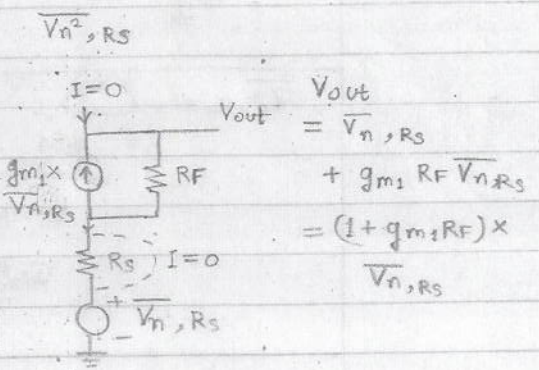 V̅n̅²̅, RS
I=0
Vout
gm1 x
V̅n̅, RS
RF
RS
I=0
+
V̅n̅, RS
−
Vout
= V̅n̅, RS
+ gm1 RF V̅n̅, RS
= (1 + gm1 RF) x
V̅n̅, RS